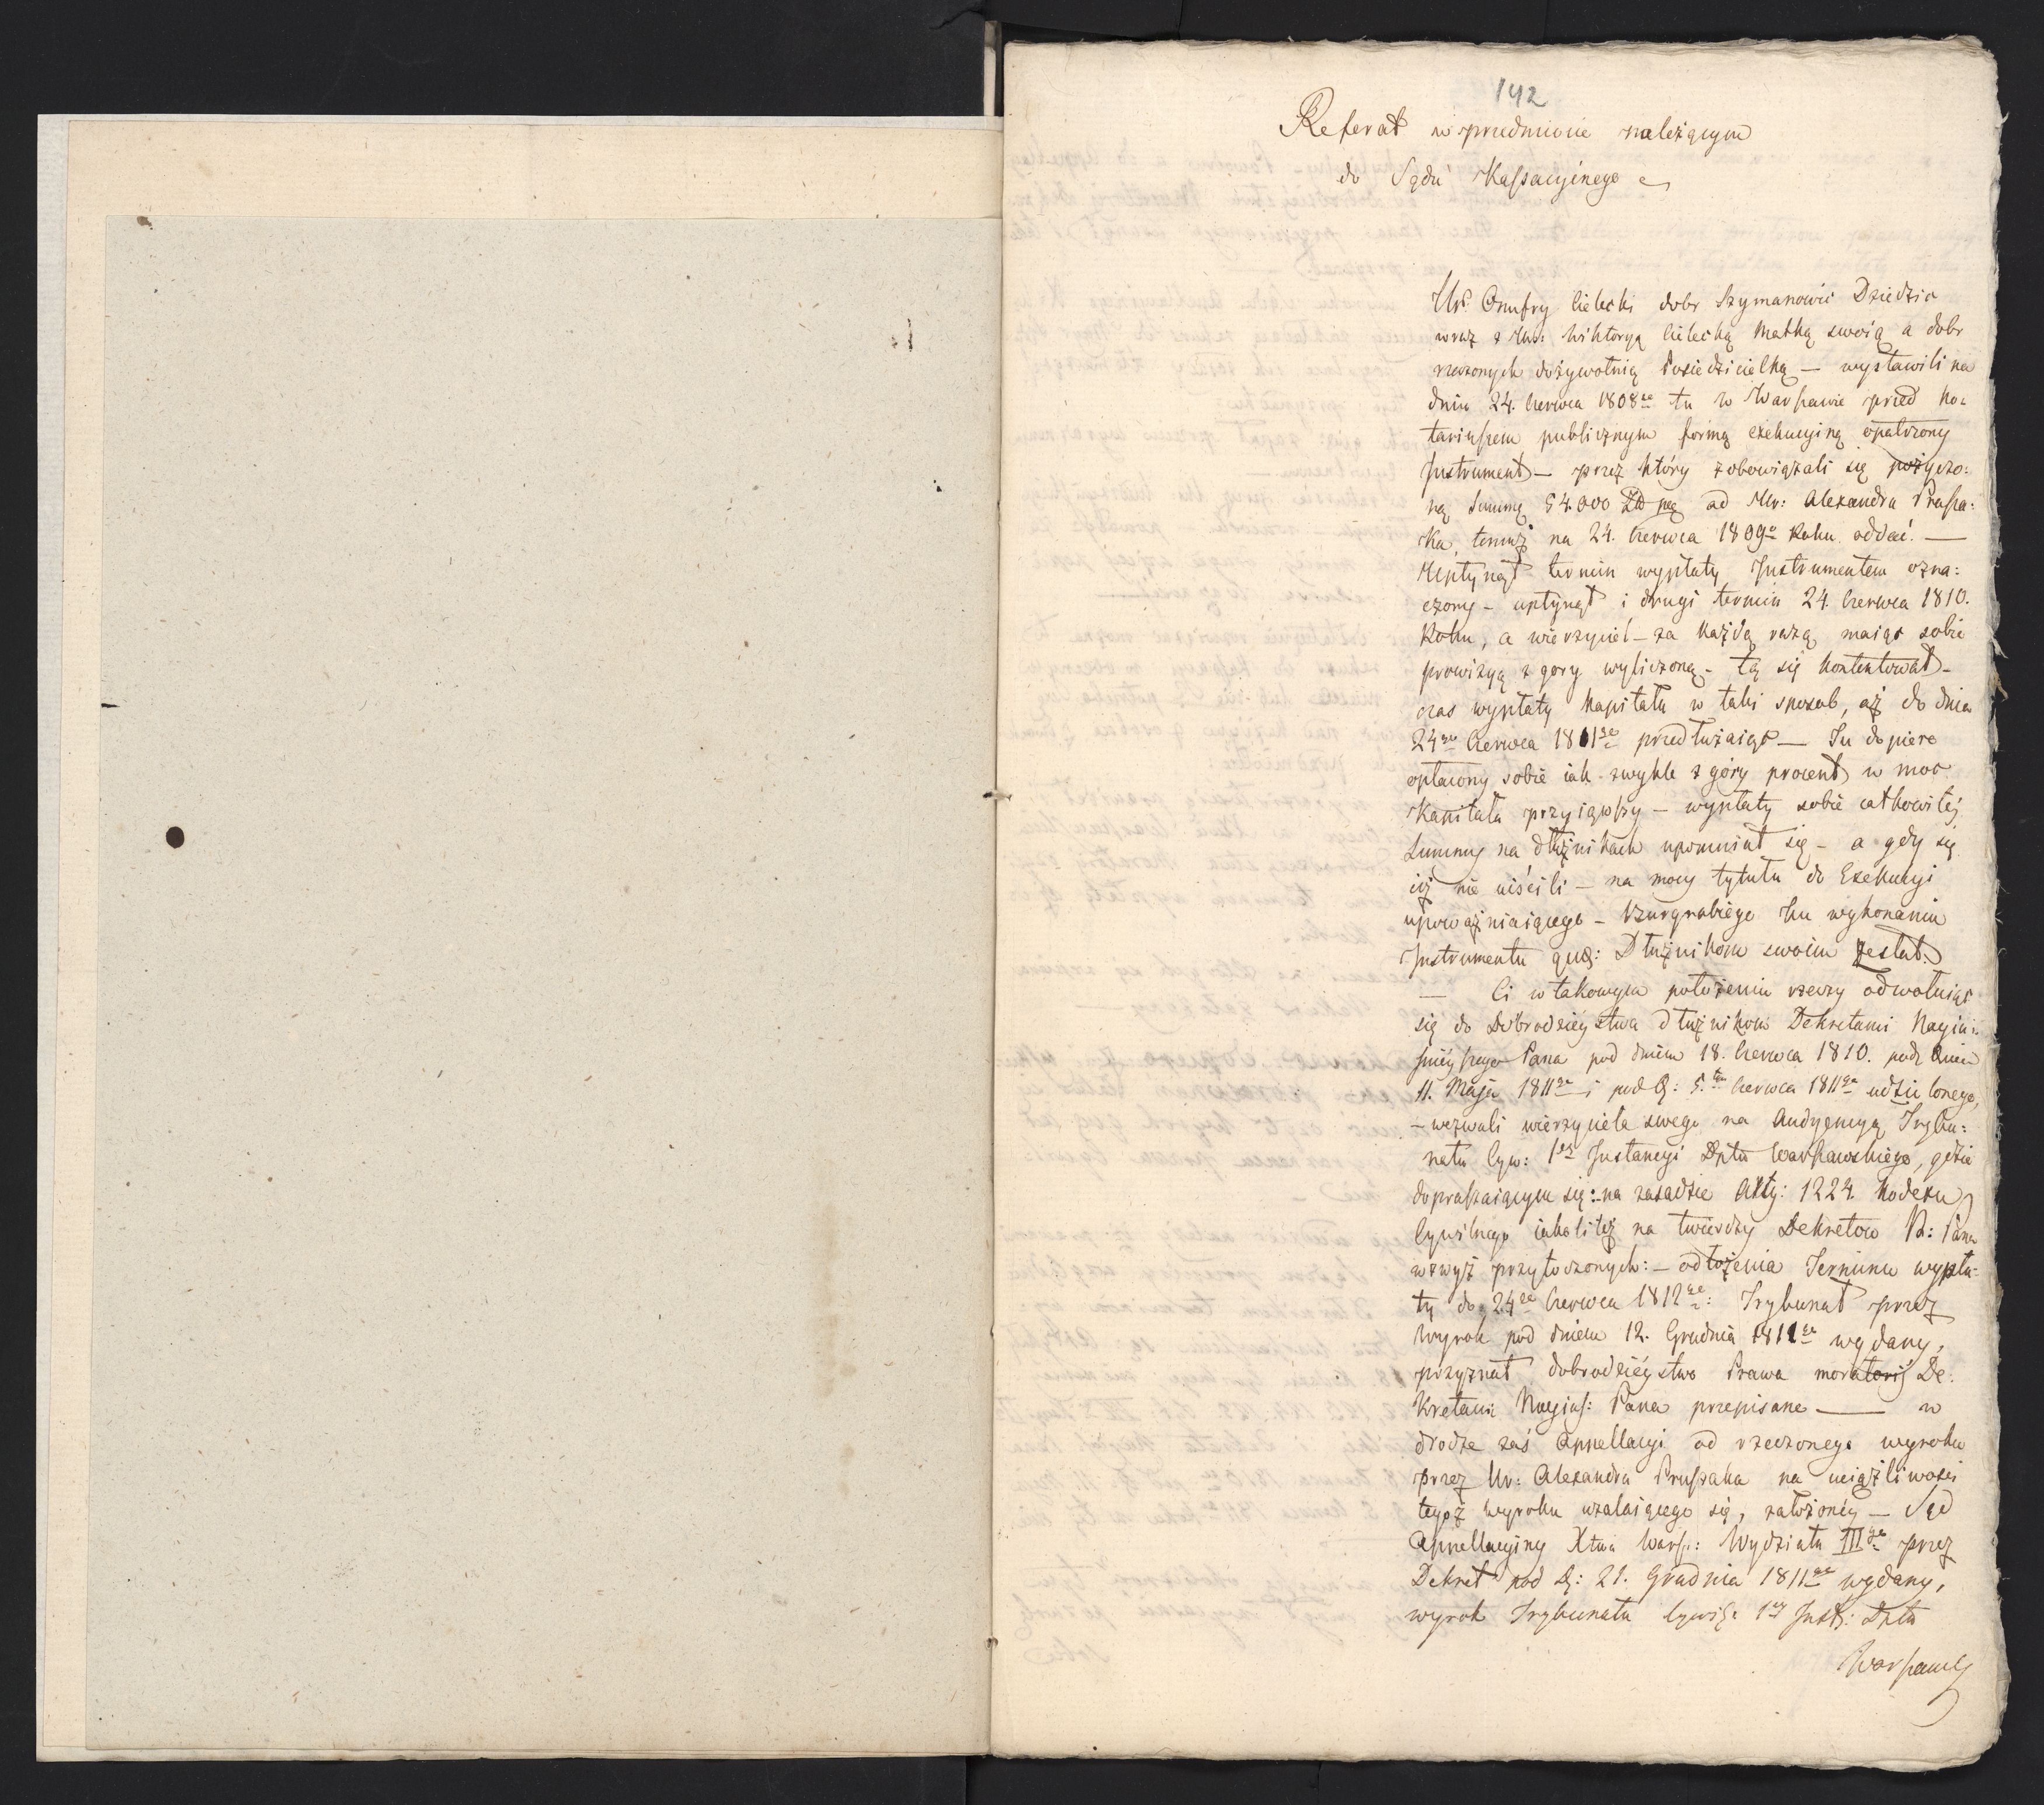 142
Referat w przedmiocie należącym
do Sądu Kassacyinego
Ur. Onufry Cielecki dobr Szymanowic Dziedzic
wraz z Ur: Wiktoryą Cielecką Matką swoią a dobr
rzeczonych dożywotnią Posiedzicielką — wystawili na
dniu 24. Czerwca 1808go tu w Warszawie przed No:
tariuszem publicznym formą exekucyiną opatrzony
Instrument — przez który zobowiązali się pożyczo:
ną Summę 54.000 Zł od Ur: Alexandra Prusa:
ka, temuż na 24. Czerwca 1809o Roku oddać. —
Upłynął termin wypłaty Instrumentem ozna:
czony — upłynął i drugi termin 24. Czerwca 1810.
Roku, a wierzyciel — za każdą razą maiąc sobie
prowizyą z gory wyliczoną — tą się kontentował —
czas wypłaty Kapitału w taki sposob, aż do dnia
24go Czerwca 1811go przedłużaiąc — Tu dopiero
opłacony sobie iak zwykle z góry procent w moc
Kapitału przyiąwszy — wypłaty sobie całkowitéj
Summy na dłużnikach upomniał się — a gdy się
iéj nie uiścili — na mocy tytułu do Exekucyi
upoważniaiącego — Burgrabiego ku wykonaniu
Instrumentu Dłużnikom swoim zesłał.
— Ci w takowym położeniu rzeczy odwołuiąc
się do Dobrodzieystwa dłużnikow Dekretami Nayia:
śnieyszego Pana pod dniem 18. Czerwca 1810. pod dniem
11. Maja 1811go i pod d: 5. Czerwca 1811go udzielonego,
— wezwali wierzyciela swego na Audyencyą Trybu:
nału Cyw: 1éj Instancyi Dptu Warszawskiego, gdzie
dopraszaiącym się: na zasadzie Arty: 1224. Kodexu
Cywilnego iakoliteż na twierdzy Dekretow N: Pana
wzwyż przytoczonych: — odłożenia Terminu wypła:
ty do 24go Czerwca 1812go: Trybunał przez
Wyrok pod dniem 12. Grudnia 1811go wydany,
przyznał dobrodzieystwo Prawa moratorii De:
kretami Nayias: Pana przepisane — w
drodze zaś Appellacyi od rzeczonego wyroku
przez Ur: Alexandra Prusaka na uciążliwości
tegoż wyroku użalaiącego się, założonéy — Sąd
Appellacyiny Xtwa Warsz: Wydziału IIIgo przez
Dekret pod d: 21. Grudnia 1811go wydany,
wyrok Trybunału Cywil: 1éj Inst: Dptu